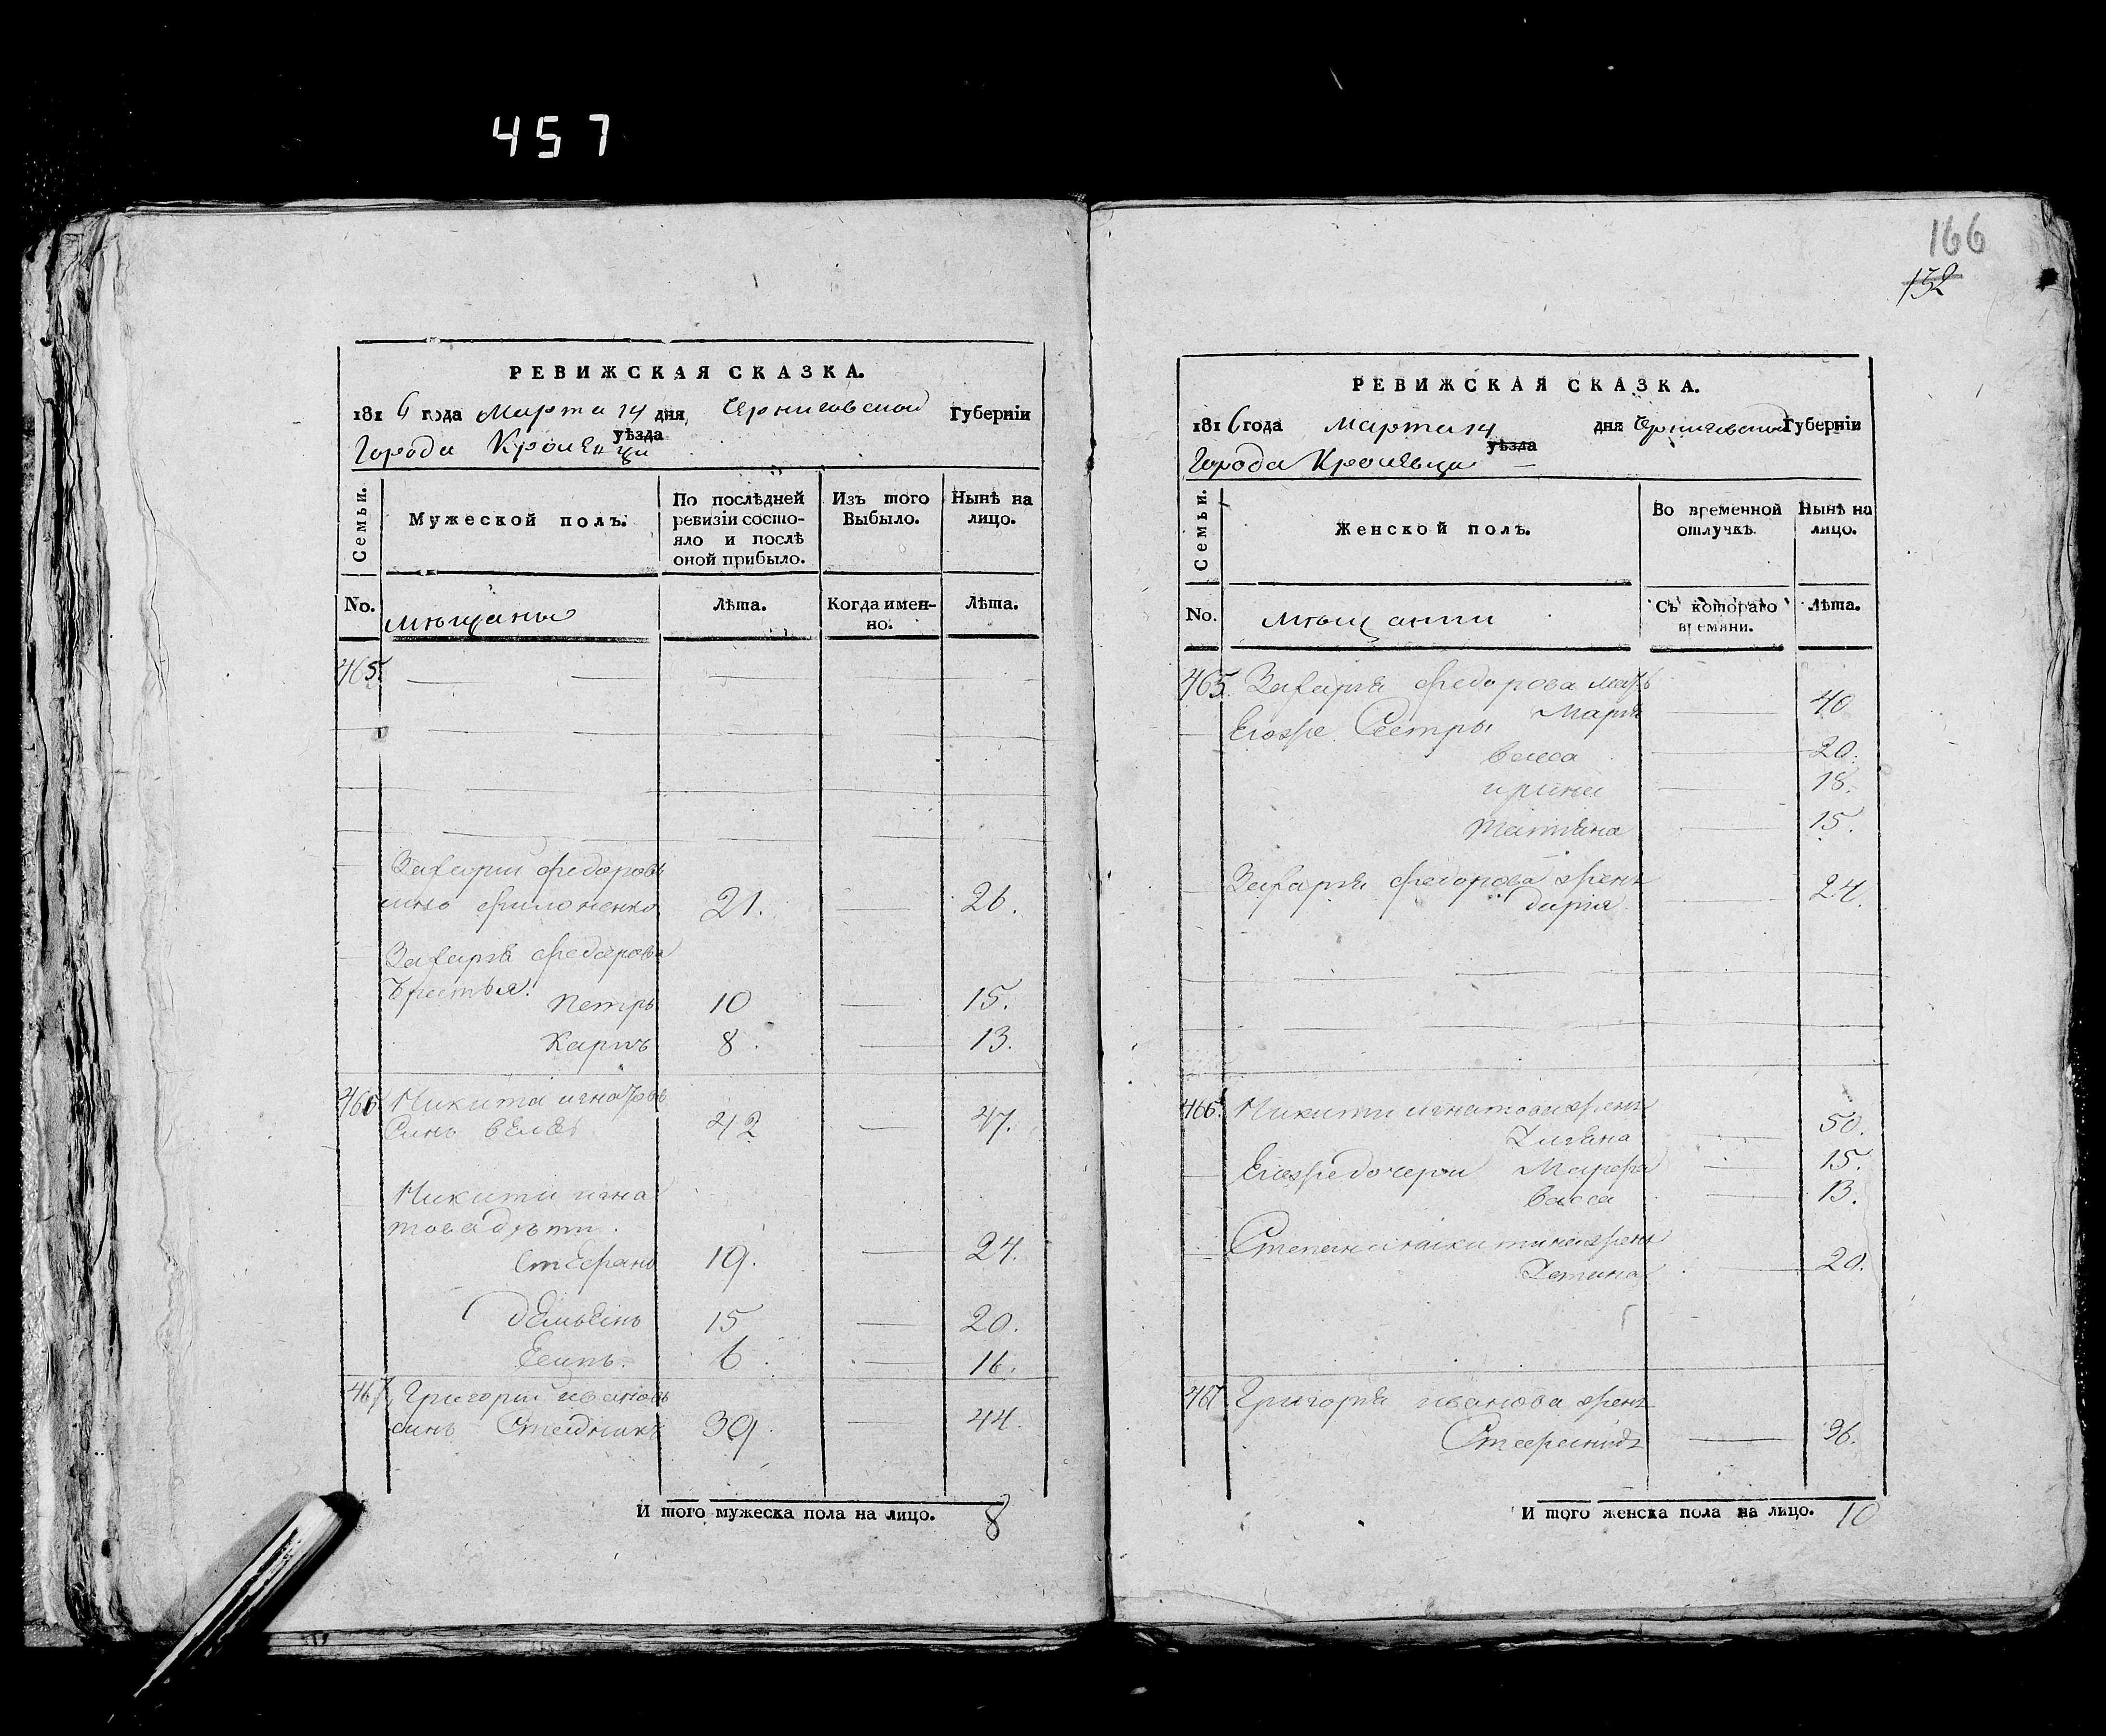 457
166
132
РЕВИЖСКАЯ СКАЗКА.
1816 года Марта 14 дня Черниговской Губерніи
уѣзда
Города Кролевца
Семьи.
Мужеской полъ.
По послѣдней ревизіи состо-
яло и послѣ
оной прибыло.
Изъ того
Выбыло.
Нынѣ на
лицо.
No.
мѣщаны
Лѣта.
Когда имен-
но.
Лѣта.
465.
Захарий Федоровъ
синъ Филоненко 21. 26.
Захарія Федорова
братья.
Петръ 10 15.
Карпъ 8. 13.
466 Никита Игнатовъ
Синъ 42 47.
Никити Игна
това дѣти.
Стефанъ 19. 24.
15 20.
Есипъ. 6. 16.
467. Григорий Ивановъ
синъ 39. 44.
И того мужеска пола на лицо. 8
РЕВИЖСКАЯ СКАЗКА.
1816 года Марта 14 дня Черниговской Губерніи
уѣзда
Города Кролевца
Семьи.
Женской полъ.
Во временной
отлучкѣ.
Нынѣ на
лицо.
No.
мѣщанки
Съ котораго
времяни.
Лѣта.
465. Захарія Федорова мать
Марія 40
Егожъ Сестры
Васса 20.
Ирина 18.
Татіана 15.
Захарія Федорова жена
Дарія 24.
466. Никити Игнатова жена
50.
Егожъ дочери Марфа 15.
Васса 13.
Степана Никитина жена
20.
467 Григорія Иванова жена
Стефанида 36.
И того женска пола на лицо. 10